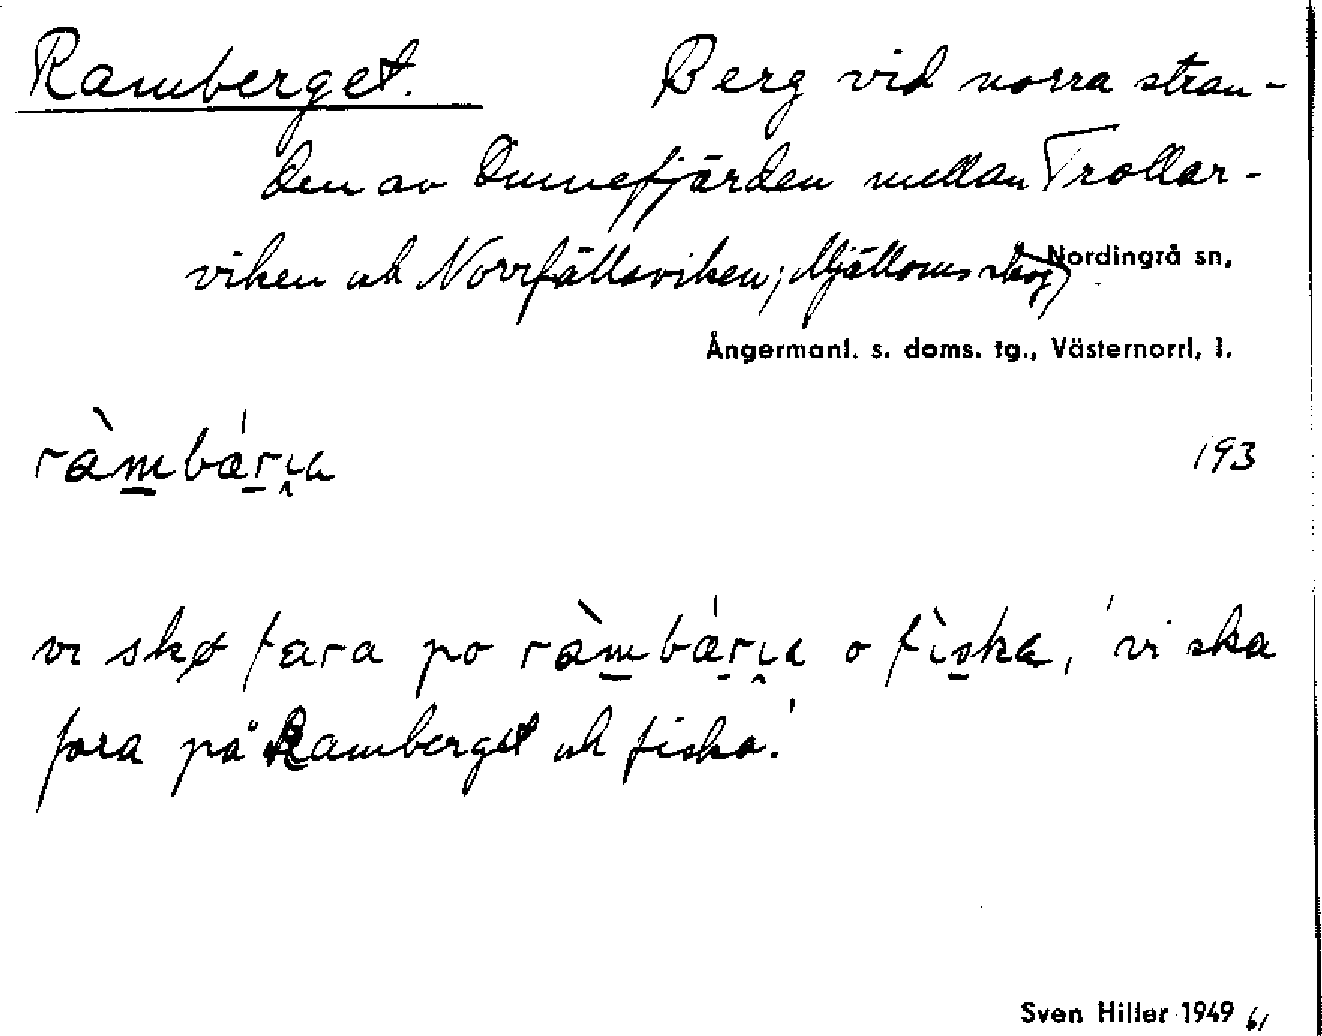 Ramberget. Berg vid norra stran-
den av Omnefjärden mellan Trollar-
viken och Norrfällsviken; Mjälloms skog,
Nordingrå sn,
Ångermanl. s. doms. tg., Västernorrl. l.
ràmbárı̯a
193
vi skø fara po ràmbárı̯a o fìska, 'vi ska
fara på Ramberget och fiska.'
Sven Hiller 1949 61